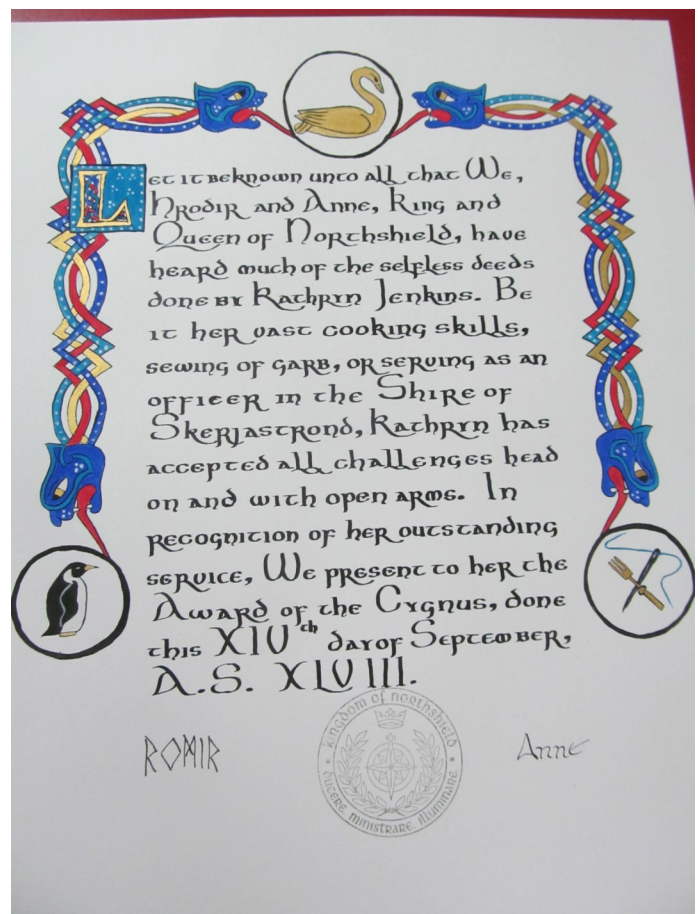 Let it beknown unto all that We,
Hrodir and Anne, King and
Queen of Northshield, have
heard much of the selfless deeds
done by Kathryn Jenkins. Be
it her vast cooking skills,
sewing of garb, or serving as an
officer in the Shire of
Skerjastrond, Kathryn has
accepted all challenges head
on and with open arms. In
recognition of her outstanding
service, We present to her the
Award of the Cygnus, done
this XIVth day of September,
A.S. XLVIII.
kingdom of northshield
ducere ministrare illuminare
Anne